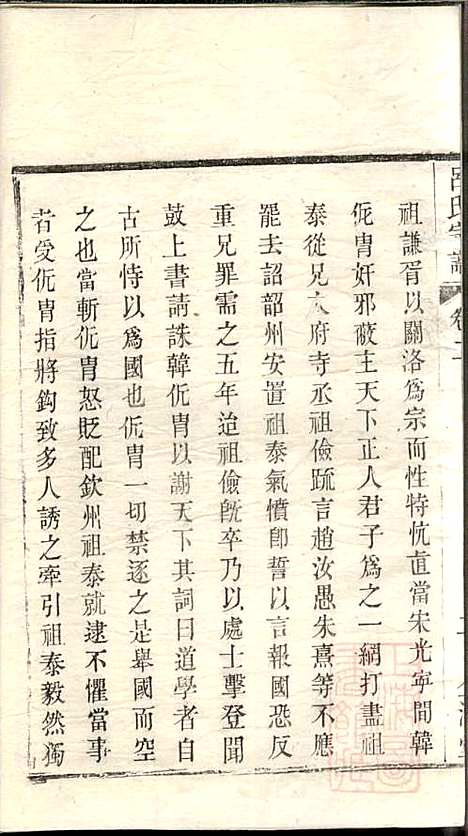 呂氏宗譜 卷二
祖謙胥以關洛爲宗而性特忼直當宋光寧間韓
侂胄奸邪蔽主天下正人君子爲之一網打盡祖
泰從兄太府寺丞祖儉䟽言趙汝愚朱熹等不應
罷去詔韶州安置祖泰氣憤卽誓以言報國恐反
重兄罪需之五年迨祖儉旣卒乃以處士擊登聞
鼓上書請誅韓侂胄以謝天下其詞曰道學者自
古所恃以爲國也侂胄一切禁逐之是舉國而空
之也當斬侂胄怒貶配欽州祖泰就逮不懼當事
者受侂胄指將鈎致多人誘之牽引祖泰毅然獨